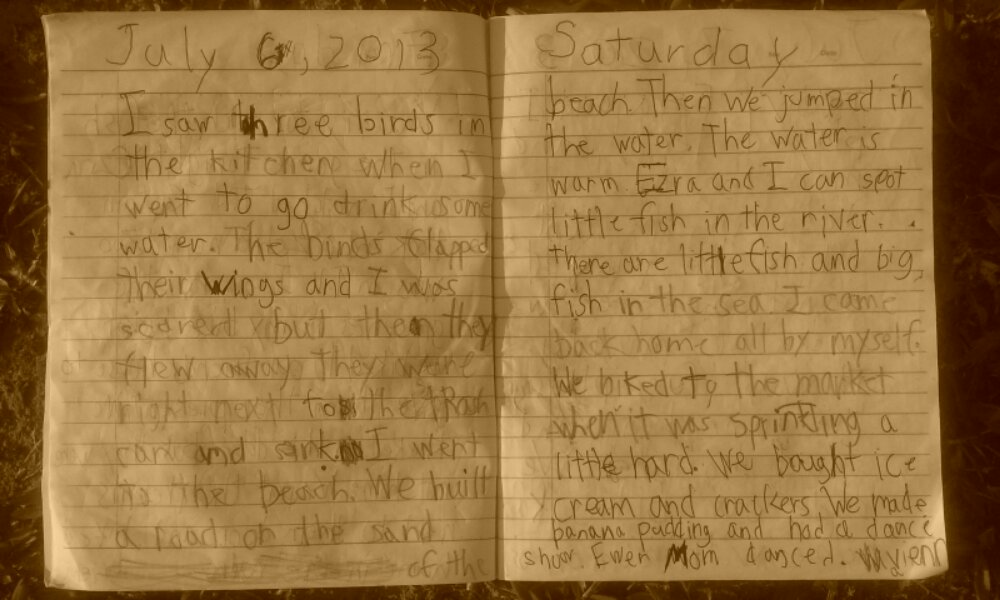 July 6, 2013
I saw three birds in
the kitchen when I
went to go drink some
water. The birds flapped
their wings and I was
scared but then they
flew away. They were
right next to the trash
can and sink. I went
to the beach. We built
a road on the sand
of the
Saturday
beach. Then we jumped in
the water. The water is
warm. Ezra and I can spot
little fish in the river.
there are little fish and big
fish in the sea. I came
back home all by myself.
We biked to the market
when it was sprinkling a
little hard. We bought ice
cream and crackers. We made
banana pudding and had a dance
show. Even Mom danced.